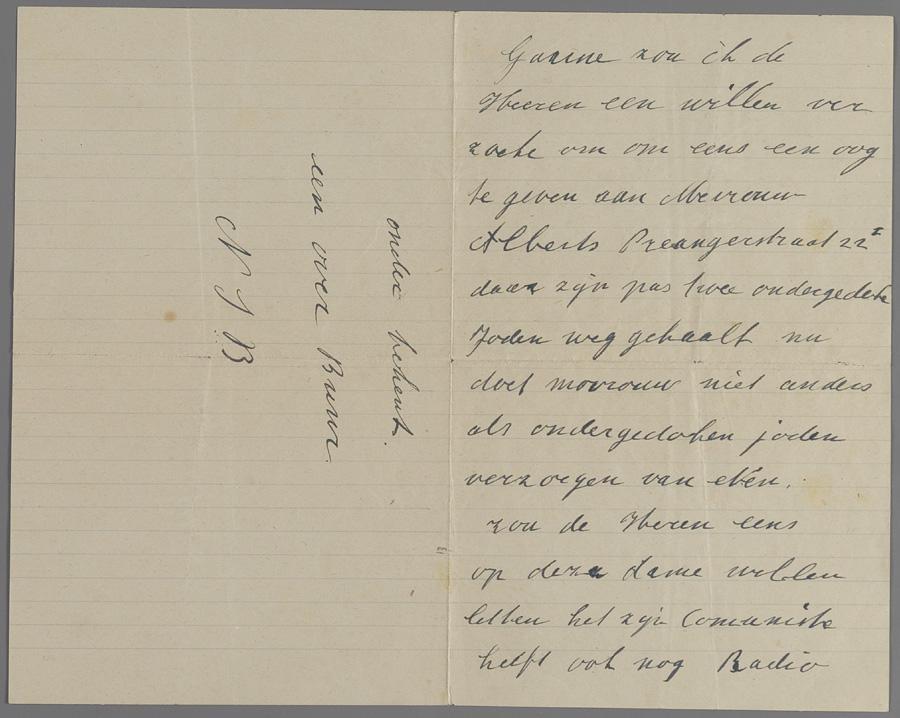 Gaarne zou ik de
Heeren een willen ver
zoeke om om eens een oog
te geven aan Mevrouw
Alberts Preangerstraat 22 I
daar zijn pas twee ondergedeke
Joden weg gehaalt nu
doet movrouw niet anders
als ondergedoken joden
verzorgen van eten.
zou de Heren eens
op deze Dame willen
letten het zijn Comuniste
heeft ook nog Radio
onder bekent.
een over Buur.
N S B